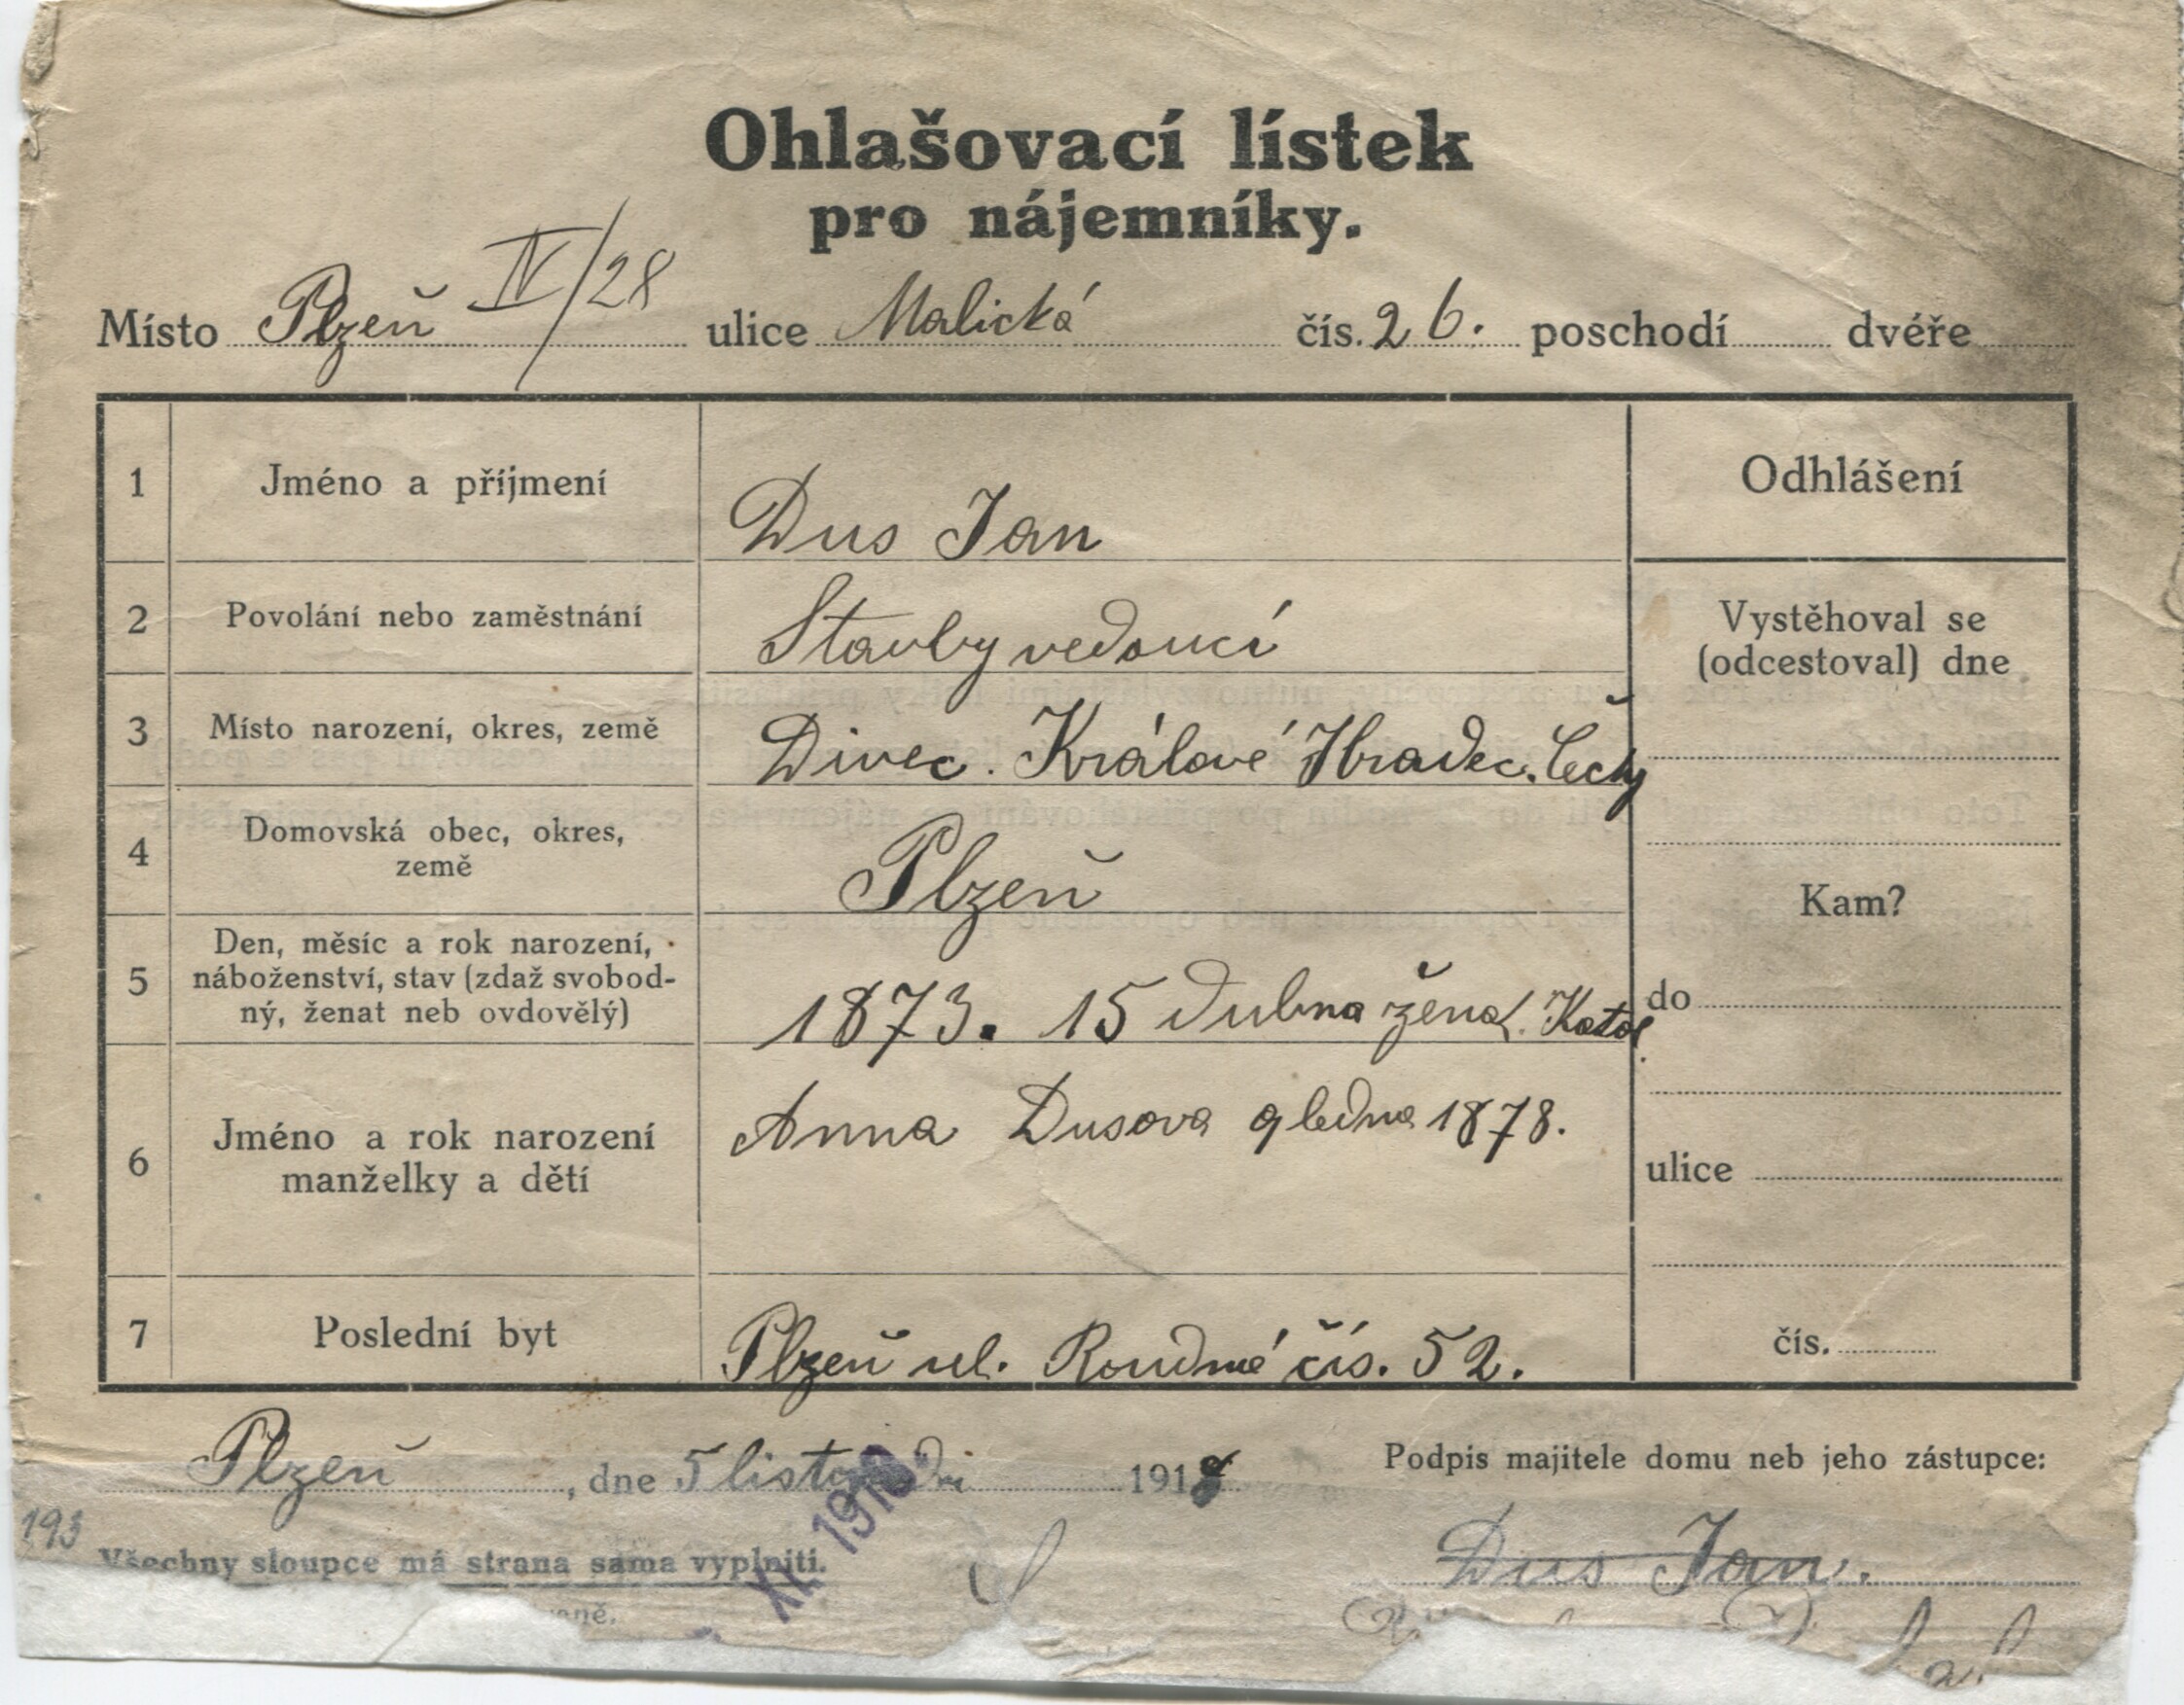 Ohlašovací lístek
pro nájemníky.
Místo Plzeň IV/28 ulice Malická čís. 26. poschodí dvéře
1 Jméno a příjmení Dus Jan
Odhlášení
2 Povolání nebo zaměstnání Stavby vedoucí
Vystěhoval se
(odcestoval) dne
3 Místo narození, okres, země Divec. Králové Hradec. Čechy
4 Domovská obec, okres,
země
Plzeň
Kam?
5 Den, měsíc a rok narození,
náboženství, stav (zdaž svobod-
ný, ženat neb ovdovělý)
1873. 15 dubna ženat. Katol.
do
6 Jméno a rok narození
manželky a dětí
Anna Dusova 9 ledna 1878.
ulice
7 Poslední byt Plzeň ul. Roudná čís. 52.
čís.
Plzeň, dne 5 listopadu 1918
Podpis majitele domu neb jeho zástupce:
193
XI. 1918
Všechny sloupce má strana sama vyplniti.
Dus Jan.